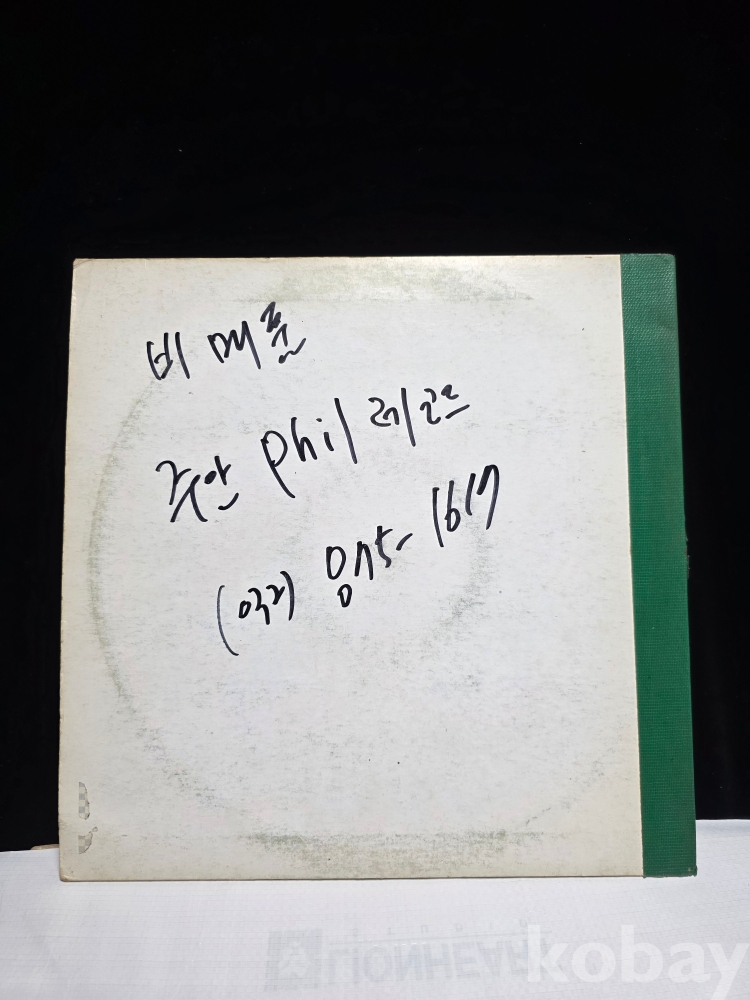 비매품
주안 Phil 레코드
(032) 875-1617
LIONHEART
kobay